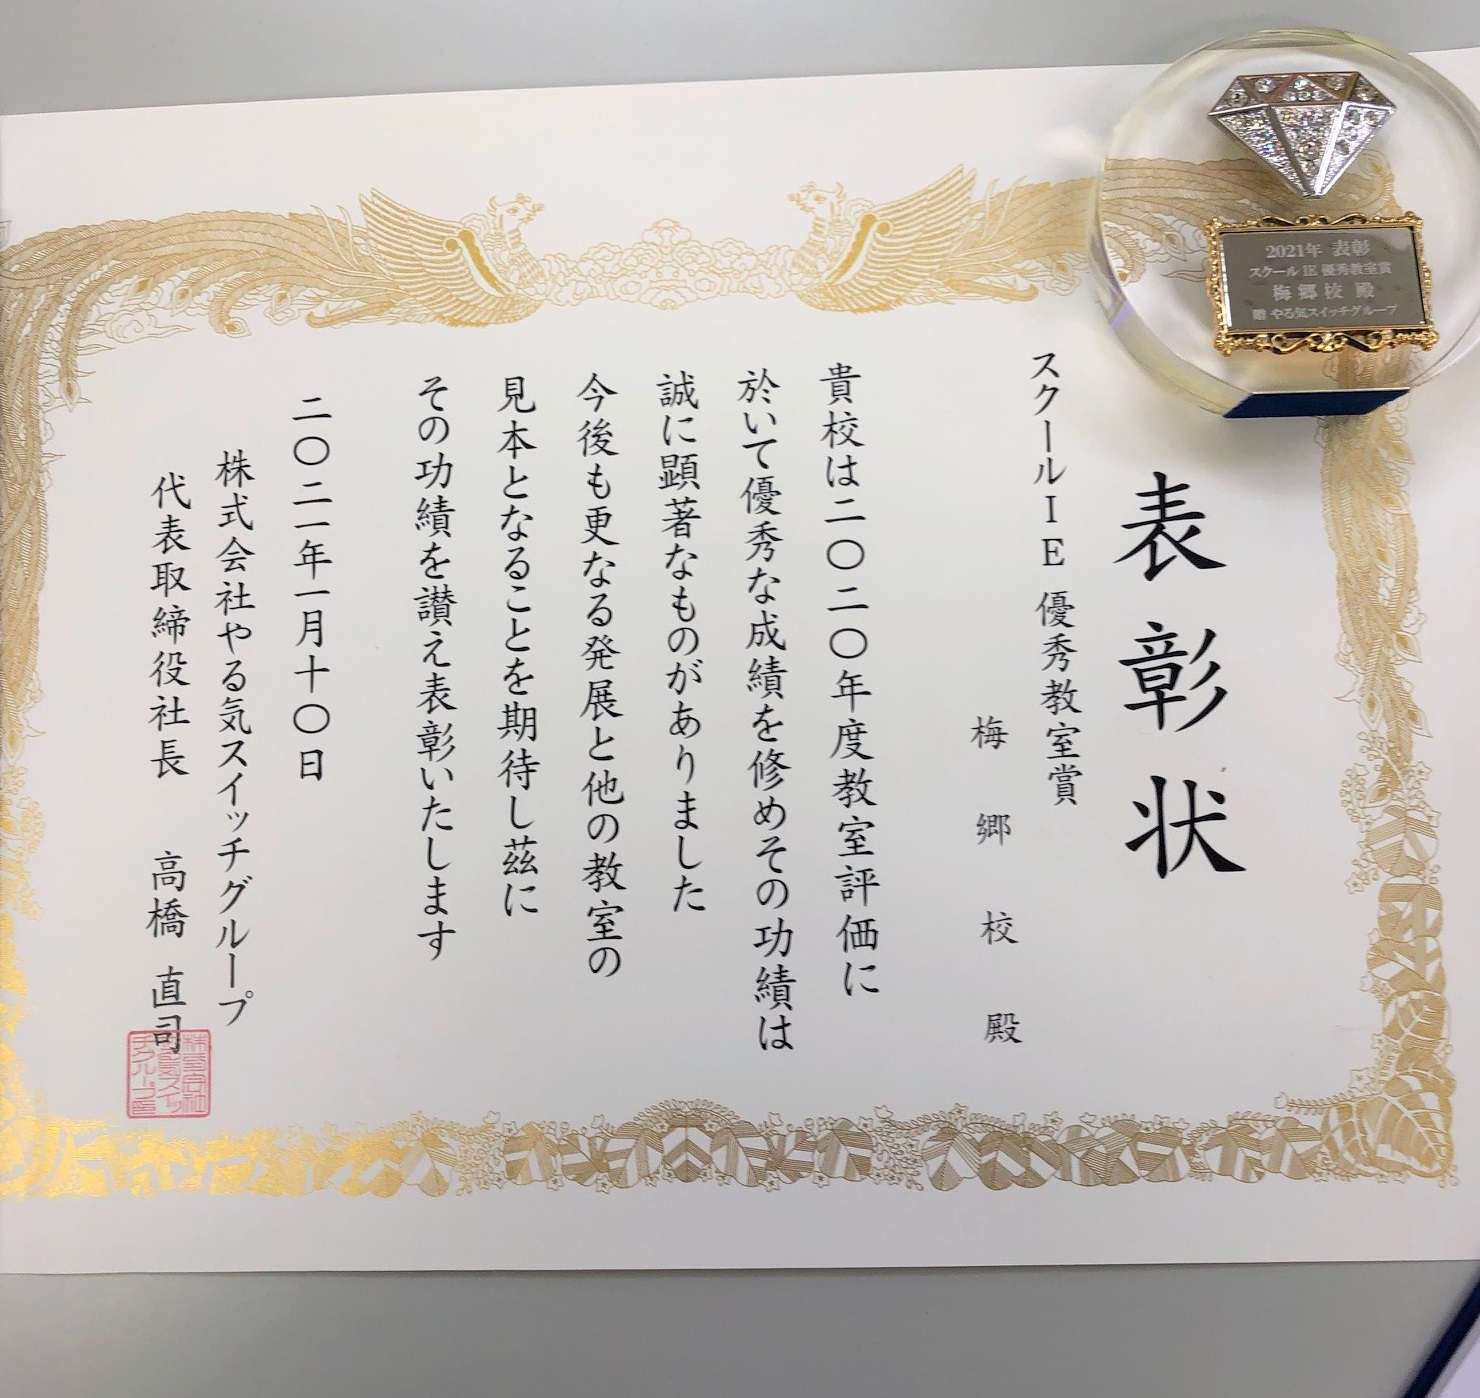 表彰状
スクールIE 優秀教室賞
梅郷校殿
貴校は二〇二〇年度教室評価に
於いて優秀な成績を修めその功績は
誠に顕著なものがありました
今後も更なる発展と他の教室の
見本となることを期待し茲に
その功績を讃え表彰いたします
二〇二一年一月十〇日
株式会社やる気スイッチグループ
代表取締役社長 高橋 直司
2021年 表彰
スクール IE 優秀教室賞
梅郷校 殿
贈 やる気スイッチグループ